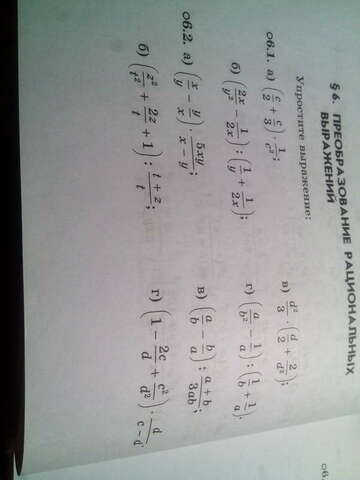 § 6. ПРЕОБРАЗОВАНИЕ РАЦИОНАЛЬНЫХ
ВЫРАЖЕНИЙ
Упростите выражение:
о6.1. а) (c/2 + c/3) · 1/c²;
в) d²/3 · (d/2 + 2/d²);
б) (2x/y² − 1/2x) : (1/y + 1/2x);
г) (a/b² − 1/a) : (1/b + 1/a);
о6.2. а) (x/y − y/x) · 5xy/x − y;
в) (a/b − b/a) : a + b/3ab;
б) (z²/t² + 2z/t + 1) : t + z/t;
г) (1 − 2c/d + c²/d²) · d/c − d
об.